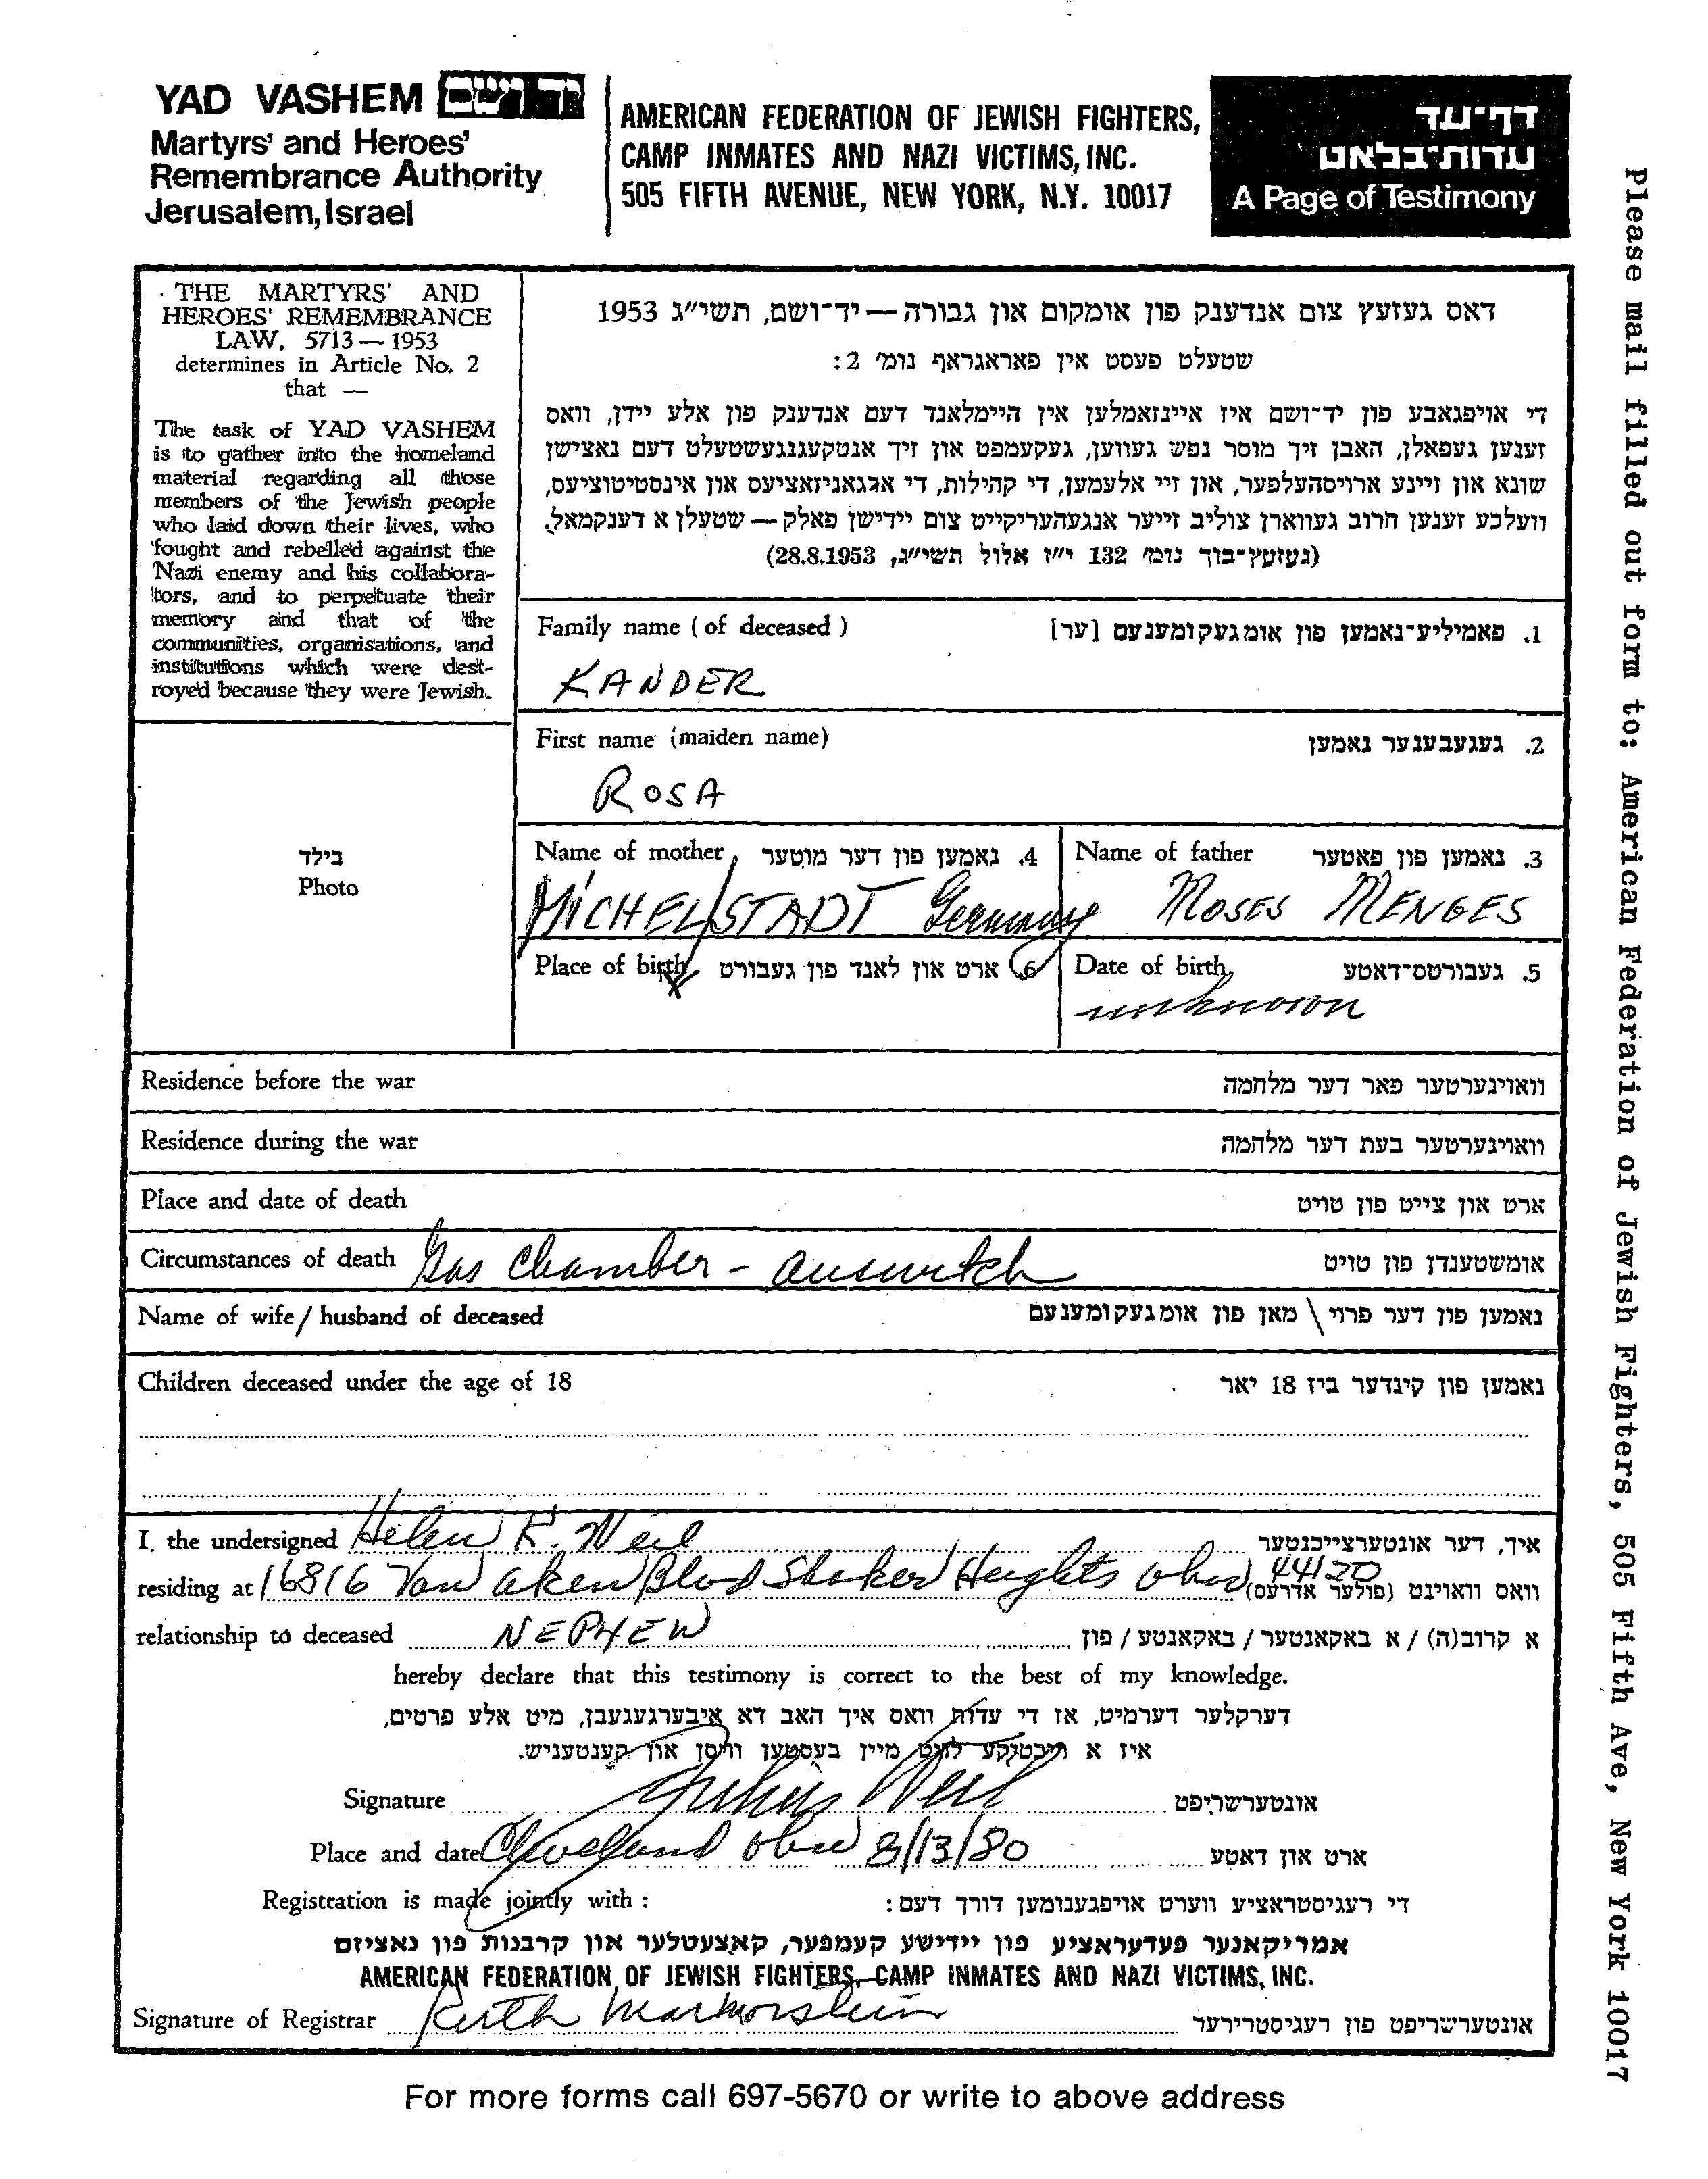 YAD VASHEM יד ושם
Martyrs' and Heroes'
Remembrance Authority
Jerusalem, Israel
AMERICAN FEDERATION OF JEWISH FIGHTERS,
CAMP INMATES AND NAZI VICTIMS, INC.
505 FIFTH AVENUE, NEW YORK, N.Y. 10017
דף־עד
עדות־בלאט
A Page of Testimony
Please mail filled out form to: American Federation of Jewish Fighters, 505 Fifth Ave, New York 10017
THE MARTYRS' AND
HEROES' REMEMBRANCE
LAW, 5713 — 1953
determines in Article No. 2
that —
The task of YAD VASHEM
is to gather into the homeland
material regarding all those
members of the Jewish people
who laid down their lives, who
fought and rebelled against the
Nazi enemy and his collabora-
tors, and to perpetuate their
memory and that of the
communities, organisations, and
institutions which were dest-
royed because they were Jewish.
דאס געזעץ צום אנדענק פון אומקום און גבורה — יד־ושם, תשי״ג 1953
שטעלט פעסט אין פאראגראף נומ׳ 2:
די אויפגאבע פון יד־ושם איז איינזאמלען אין היימלאנד דעם אנדענק פון אלע יידן, וואס
זענען געפאלן, האבן זיך מוסר נפש געווען, געקעמפט און זיך אנטקעגנגעשטעלט דעם נאצישן
שונא און זיינע ארויסהעלפער, און זיי אלעמען, די קהילות, די ארגאניזאציעס און אינסטיטוציעס,
וועלכע זענען חרוב געווארן צוליב זייער אנגעהעריקייט צום יידישן פאלק — שטעלן א דענקמאל.
(געזעץ־בוך נומ׳ 132 י״ז אלול תשי״ג, 28.8.1953)
Family name (of deceased) 1. פאמיליע־נאמען פון אומגעקומענעם [ער]
KANDER
First name (maiden name) 2. געגעבענער נאמען
ROSA
Name of mother 4. נאמען פון דער מוטער
Name of father 3. נאמען פון פאטער
MICHELSTADT Germany
MOSES MENGES
Place of birth 6. ארט און לאנד פון געבורט
Date of birth 5. געבורטס־דאטע
unknown
בילד
Photo
Residence before the war וואוינערטער פאר דער מלחמה
Residence during the war וואוינערטער בעת דער מלחמה
Place and date of death ארט און צייט פון טויט
Circumstances of death Gas Chamber - auswitch אומשטענדן פון טויט
Name of wife / husband of deceased נאמען פון דער פרוי \ מאן פון אומגעקומענעם
Children deceased under the age of 18 נאמען פון קינדער ביז 18 יאר
I, the undersigned Helen R. Weil איך, דער אונטערצייכנטער
residing at 16816 Van aken Blvd Shaker Heights ohio 44120 וואס וואוינט (פולער אדרעס)
relationship to deceased NEPHEW א קרוב(ה) / א באקאנטער / באקאנטע / פון
hereby declare that this testimony is correct to the best of my knowledge.
דערקלער דערמיט, אז די עדות וואס איך האב דא איבערגעגעבן, מיט אלע פרטים,
איז א ריכטיקע לויט מיין בעסטען וויסן און קענטעניש.
Signature Julius Weil אונטערשריפט
Place and date Cleveland ohio 8/13/80 ארט און דאטע
Registration is made jointly with : די רעגיסטראציע ווערט אויפגענומען דורך דעם:
אמריקאנער פעדעראציע פון יידישע קעמפער, קאצעטלער און קרבנות פון נאציזם
AMERICAN FEDERATION OF JEWISH FIGHTERS, CAMP INMATES AND NAZI VICTIMS, INC.
Signature of Registrar Ruth Markorstein אונטערשריפט פון רעגיסטרירער
For more forms call 697-5670 or write to above address